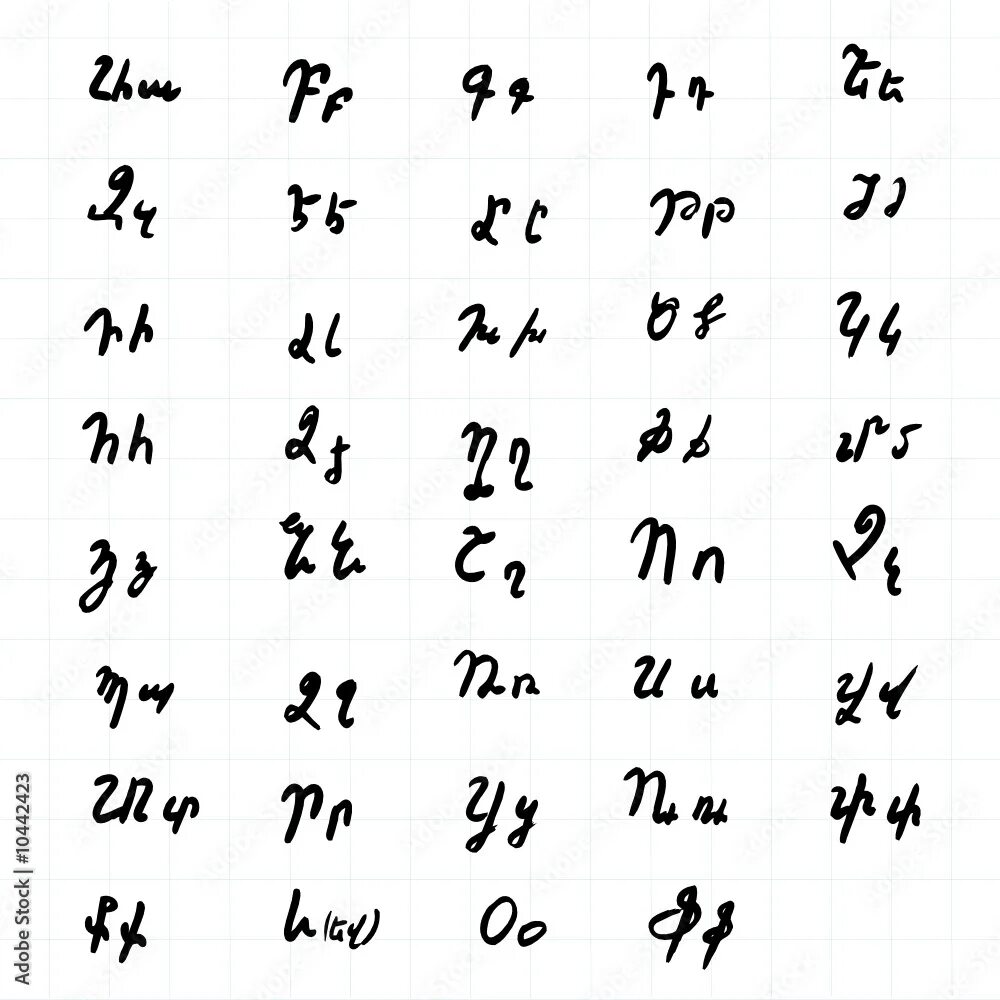 Աա Բբ Գգ Դդ Եե
Զզ Էէ Ըը Թթ Ժժ
Իի Լլ Խխ Ծծ Կկ
Հհ Ձձ Ղղ Ճճ Մմ
Յյ Նն Շշ Ոո Չչ
Պպ Ջջ Ռռ Սս Վվ
Տտ Րր Ցց Ու ու Փփ
Քք և (եվ) Օօ Ֆֆ
Adobe Stock | #10442423